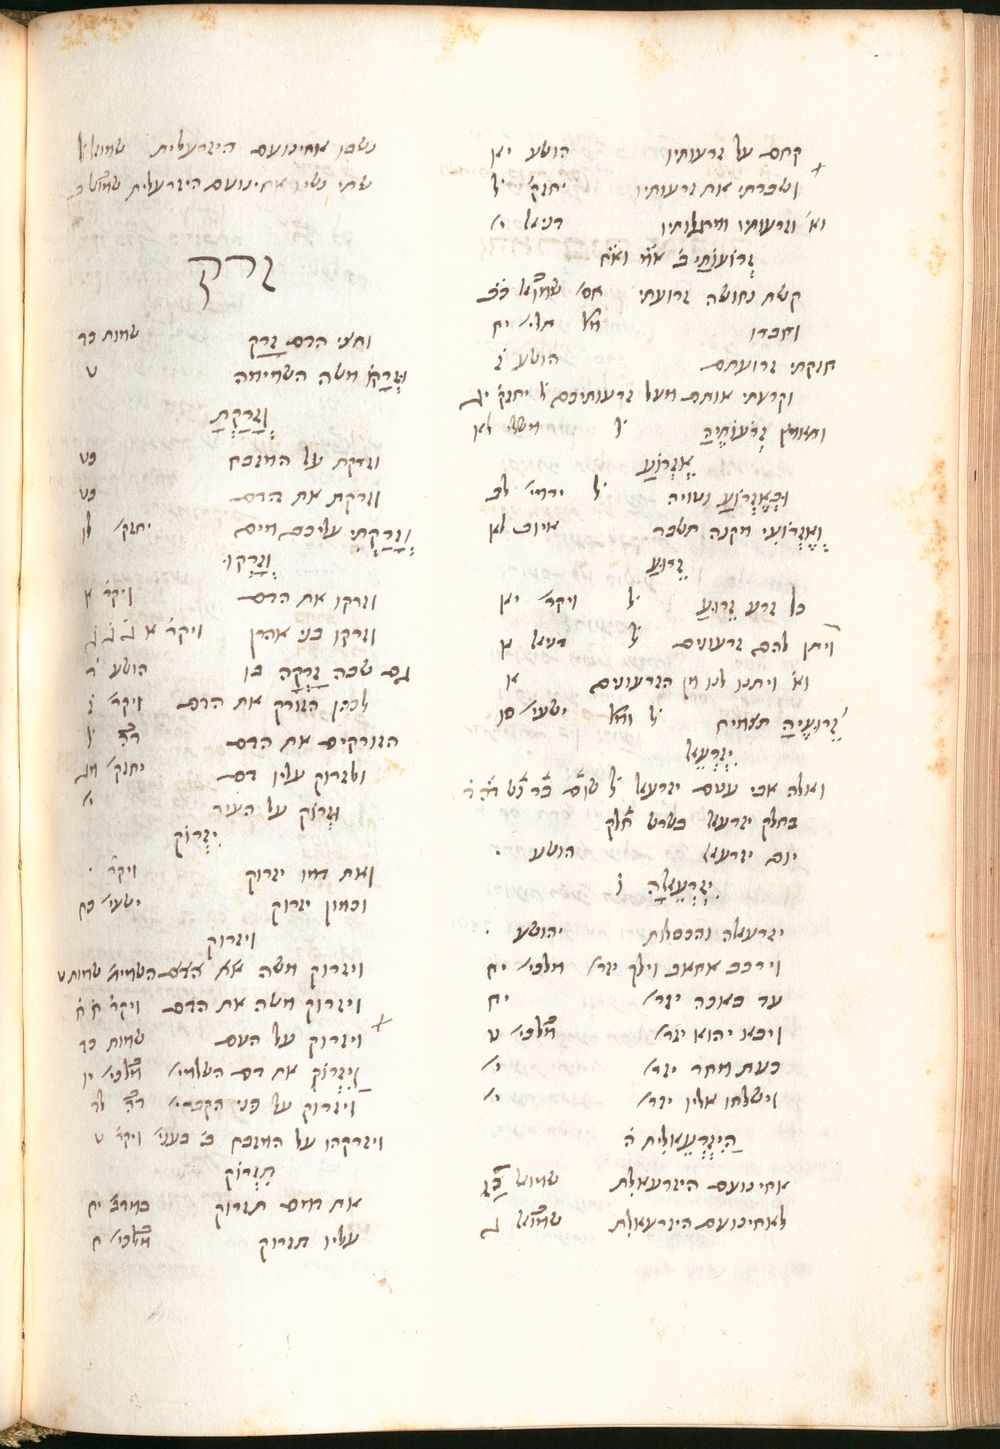 קחם על זרועותיו הושע יא
ושברתי את זרועותיו יחזק׳ ל
וא׳ וזרועותיו ומרגלותיו דניאל י׳
זְרוֹעוֹתַי ב׳
קשת נחושה זרועתי שמואל כב
וחברו תלי׳ יח
חזקתי זרועתם הושע ז
וקרעתי אותם מעל זרועותיכם ל׳ יחזק׳ יג
ותאמץ זְרֹעוֹתֶיהָ ל׳ משלי לא
אֶזְרוֹעַ
וּבְאֶזְרוֹעַ נטויה ל׳ ירמי׳ לב
וְאֶזְרֹעִי מקנה תשבר איוב לא
זֵרוּעַ
כל זרע זֵרוּעַ ל׳ ויקר׳ יא
ויתן להם זרעונים ל׳ דניאל א
וא׳ ויתנו לנו מן הזרעונים א
זֵרוּעֶיהָ תצמיח ל׳ ישעי׳ סא
יִזְרְעֶאל
ואלה אבי עטם יזרעאל ל׳
בחלק יזרעאל
יום יזרעאל הושע
יִזְרְעֶאלָה ו
יזרעאלה והכסלות יהושע
וירכב אחאב וילך יזר׳ מלכי׳ יח
עד באכה יזר׳ יח
ויבא יהוא יזר׳ מלכי׳ ט
כעת מחר יזר׳ י׳
וישלחו אליו יזר׳ י׳
הַיִזְרְעֵאלִית ה
אחינועם היזרעאלת שמואל
לאחינועם היזרעאלת שמואל ג
נשבו אחינועם היזרעלית שמואל
שתי נשיו אחינועם היזרעלית שמואל ב
זרק
וחצי הדם זָרַק שמות כד
וּזְרָקוֹ משה השמימה ט
וְזָרַקְתָּ
וזרקת על המזבח כט
וזרקת את הדם כט
וְזָרַקְתִּי עליכם מים יחזק׳ לו
וְזָרְקוּ
וזרקו את הדם ויקר׳ א
וזרקו בני אהרן ויקר׳ א ג ג ג
גם שבה זָרְקָה בו הושע ז
לכהן הזורק את הדם ויקר׳ ז
הזורקים את הדם
ולזרוק עליו דם יחזק׳ מג
וזְרוֹק על העיר י׳
יִזְרוֹק
ואת דמו יזרוק ויקר׳
וכמון יזרוק ישעי׳ כח
ויזרוק
ויזרוק משה השמימ׳ שמות ט
ויזרוק משה את הדם ויקר׳ ח ח
ויזרוק על העם שמות כד
וַיִזְרוֹק את דם השלמי׳ מלכי׳ יו
ויזרוק על פני הקברי׳ לד
ויזרקהו על המזבח ב׳ בעני׳ ויקר׳ ט
תִזְרוֹק
את דמם תזרוק במדב׳ יח
עליו תזרוק מלכי׳